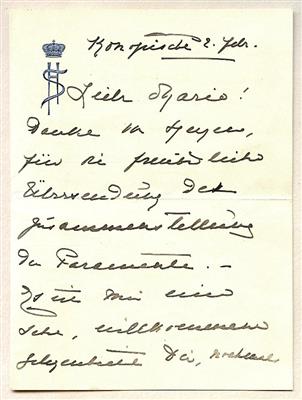 Konopischt 2. Febr.
Liebe Marie!
Danke Dir herzen,
für die freundliche
Übersendung der
Zusammenstellung
der Paramente. –
Es ist mir eine
sehr, willkommene
Gelegenheit Dir, nochmals